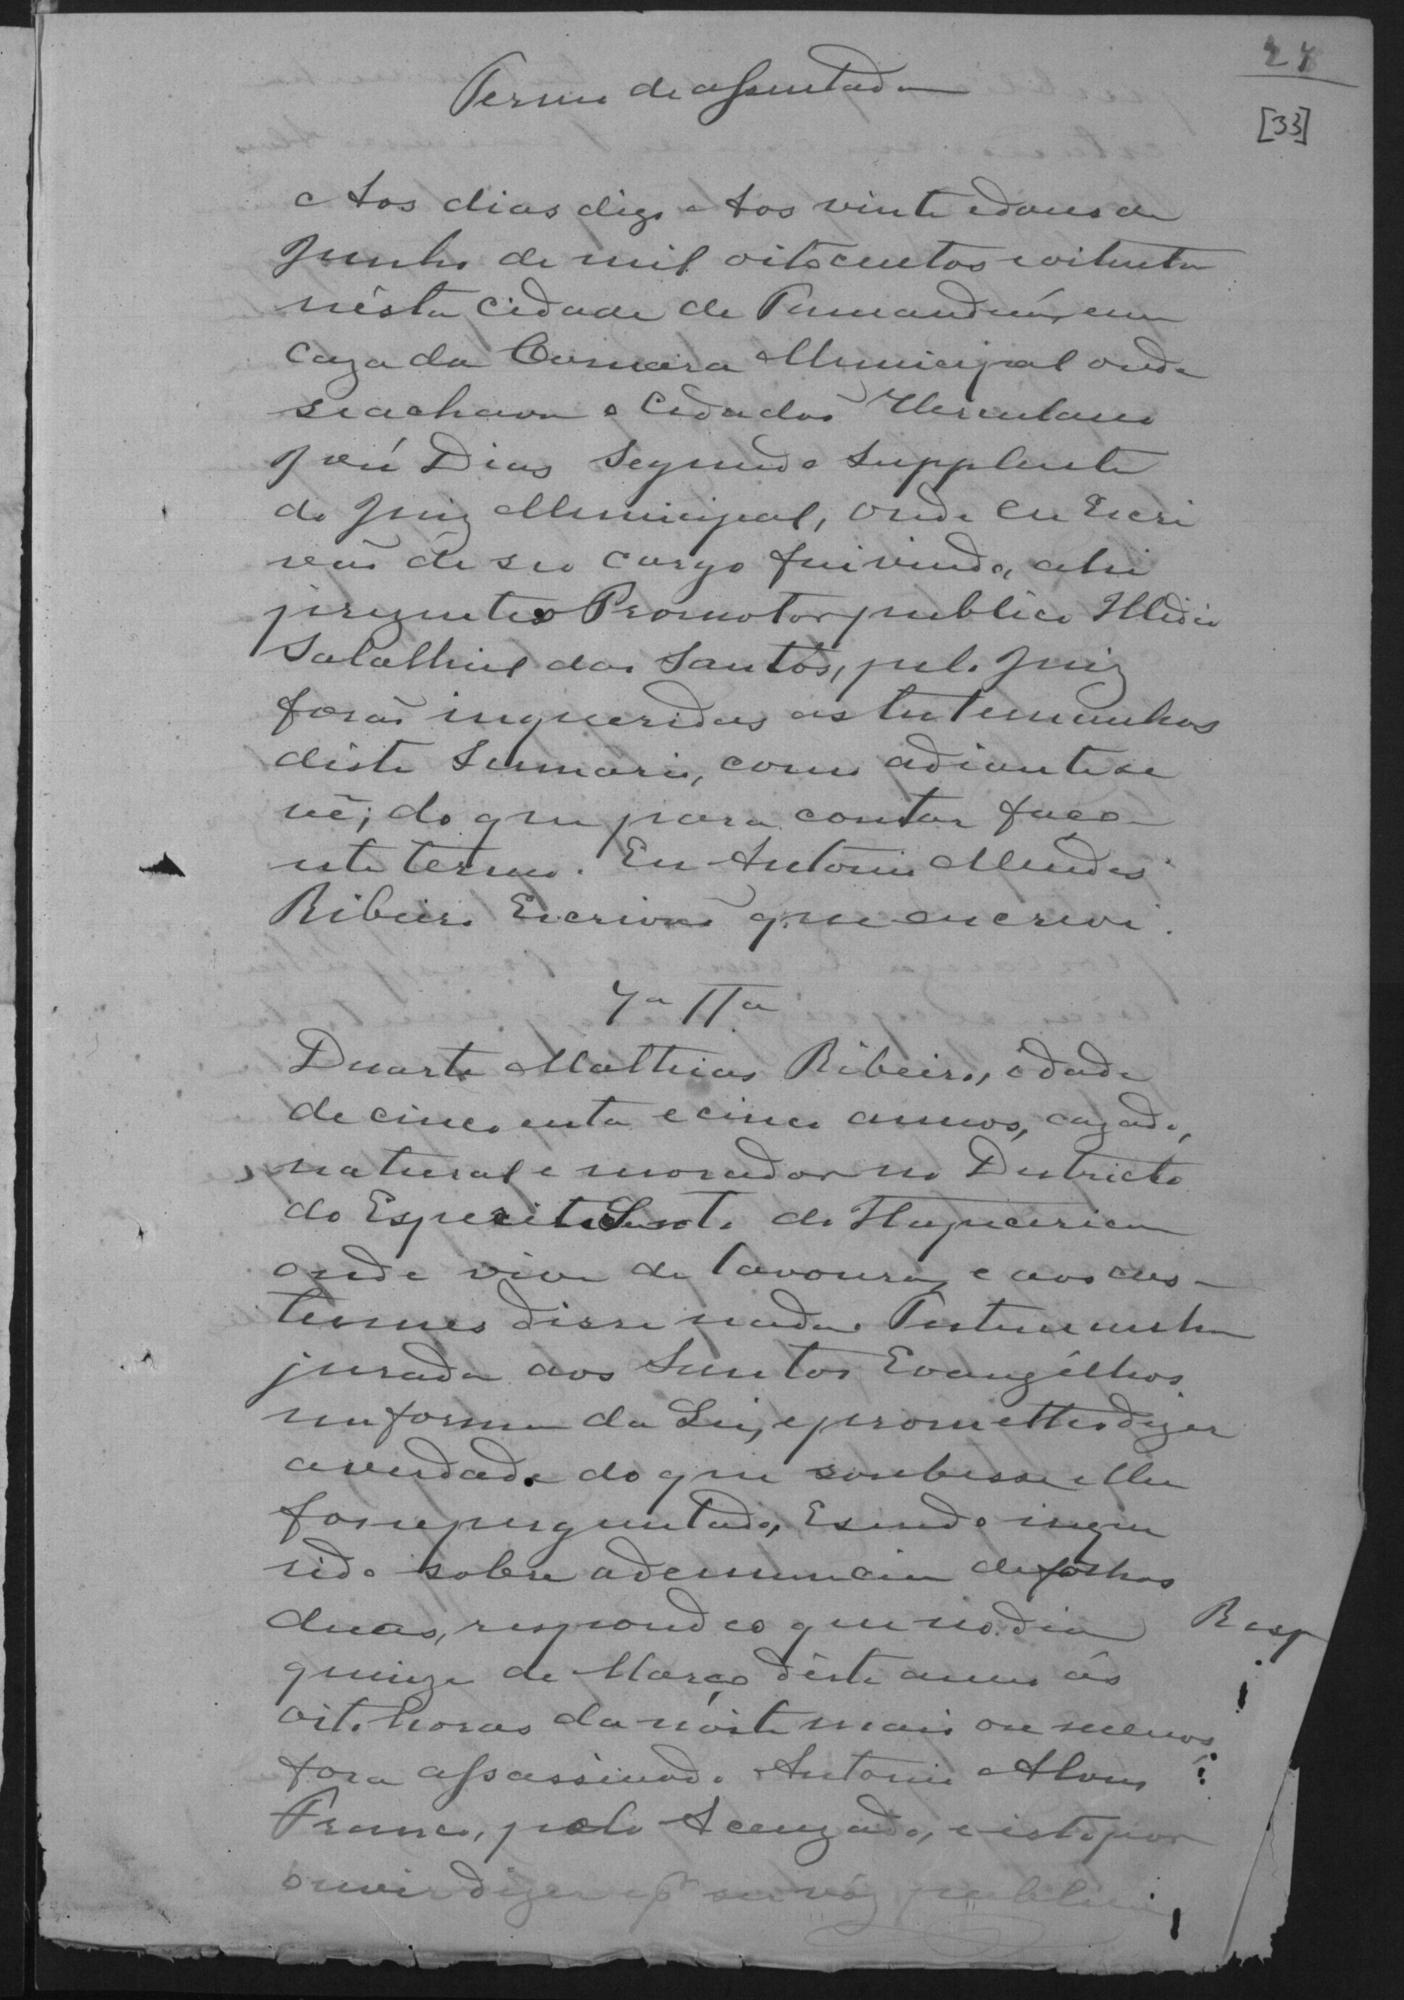 27
[33]
Termo de assentada
Aos dias digo Aos vinte e dous de
Junho de mil oitocentos e oitenta
nésta cidade de Tamanduá, em
caza da Camara Municipal onde
se achava o Cidadão Herculano
José Dias Segundo Supplente
do Juiz Municipal, onde eu Escri
vão de seo cargo fui vindo, ahi
prezente o Promotor publico Illidio
Salathiel dos Santos, pelo Juiz
forão inqueridas as testemunhas
déste Sumario, como adiante se
vê; do que para constar faço
este termo. Eu Antonio Mendes
Ribeiro Escrivão que escrevi.
7a TTa
Duarte Mathias Ribeiro, idade
de cincoenta e cinco annos, cazado,
natural e morador no Districto
do Espirito Santo do Itapecerica
onde vive de lavoura, e aos cus-
tumes disse nada. Testemunha
jurada aos Santos Evangélhos
na forma da Lei, e prometteo dizer
a verdade do que soubesse e lhe
fosse perguntado, E sendo inque
rido sobre a denuncia de folhas
duas, respondeo que no dia
Resp
quinze de Março déste anno ás
oito horas da nóite mais ou menos
fora assassinado Antonio Alves
Franco, pelo Accuzado, e isto por
ouvir dizer e por ser vóz publica